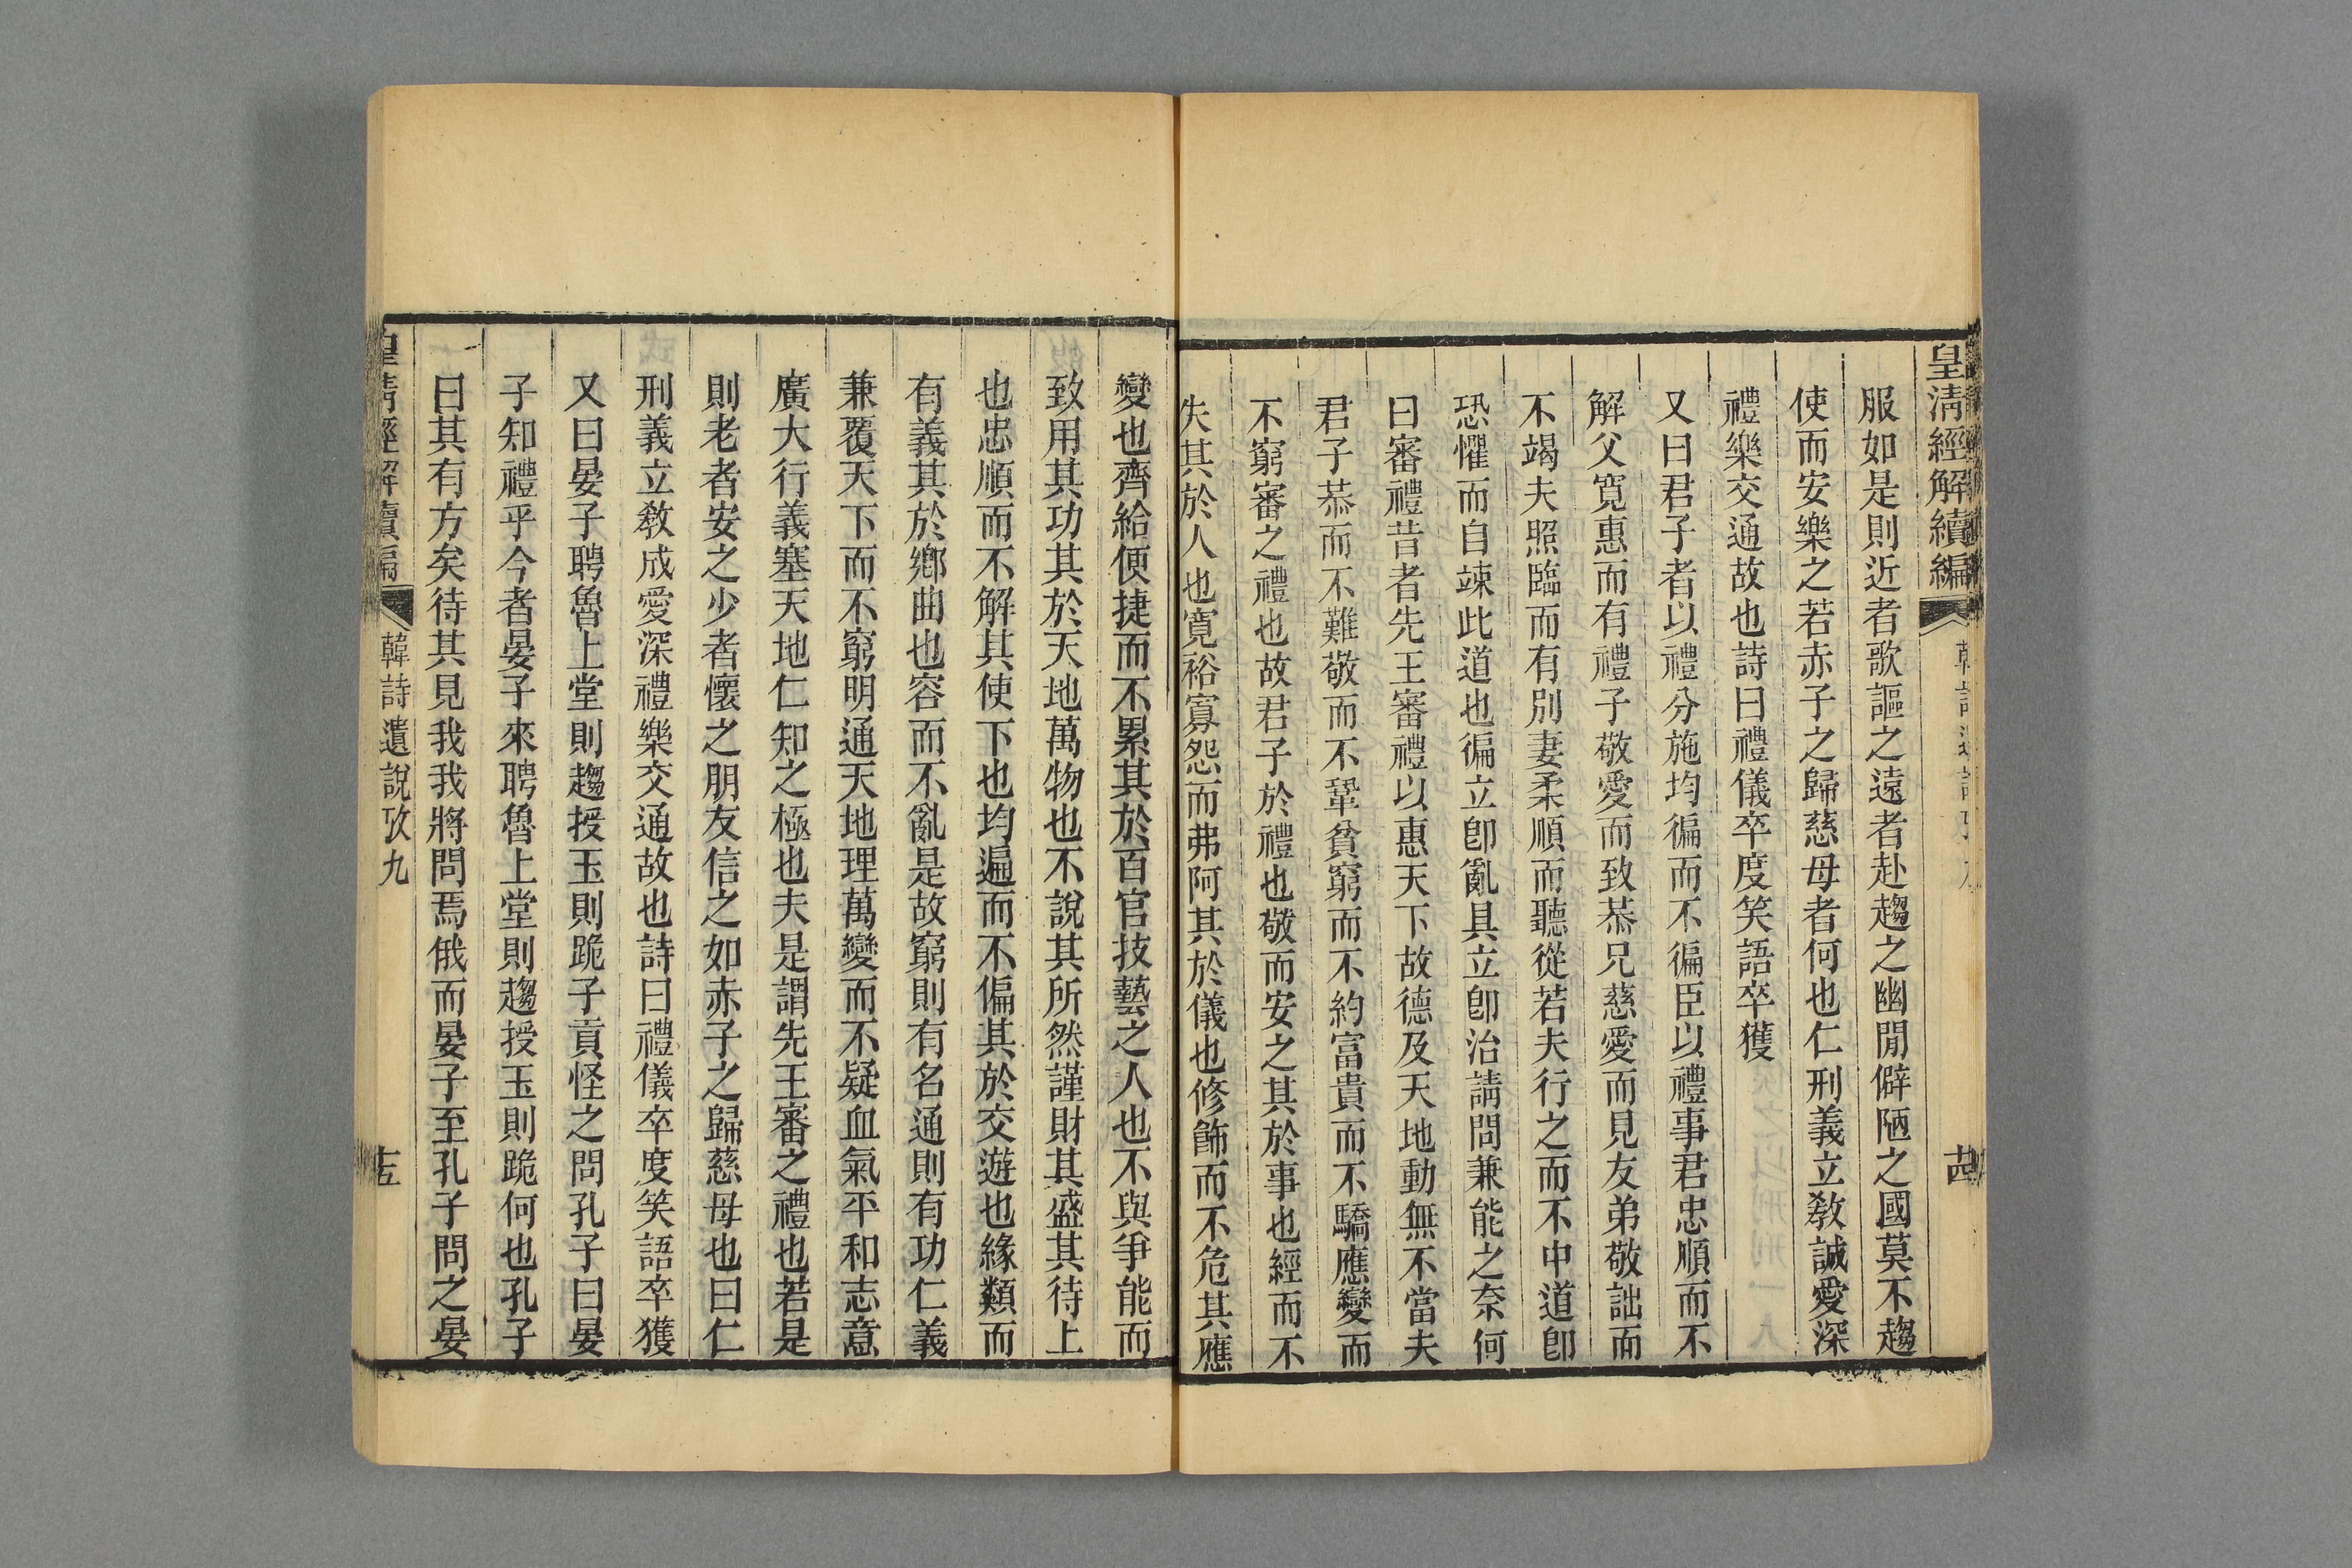 皇淸經解續編
服如是則近者歌謳之遠者赴趨之幽閒僻陋之國莫不趨
使而安樂之若赤子之歸慈母者何也仁刑義立教誠愛深
禮樂交通故也詩曰禮儀卒度笑語卒獲
又曰君子者以禮分施均徧而不徧臣以禮事君忠順而不
解父寬惠而有禮子敬愛而致恭兄慈愛而見友弟敬詘而
不竭夫照臨而有別妻柔順而聽從若夫行之而不中道卽
恐懼而自竦此道也徧立卽亂具立卽治請問兼能之奈何
曰審禮昔者先王審禮以惠天下故德及天地動無不當夫
君子恭而不難敬而不鞏貧窮而不約富貴而不驕應變而
不窮審之禮也故君子於禮也敬而安之其於事也經而不
失其於人也寬裕寡怨而弗阿其於儀也修飾而不危其應
變也齊給便捷而不累其於百官技藝之人也不與爭能而
致用其功其於天地萬物也不說其所然謹財其盛其待上
也忠順而不解其使下也均遍而不偏其於交遊也緣類而
有義其於鄉曲也容而不亂是故窮則有名通則有功仁義
兼覆天下而不窮明通天地理萬變而不疑血氣平和志意
廣大行義塞天地仁知之極也夫是謂先王審之禮也若是
則老者安之少者懷之朋友信之如赤子之歸慈母也曰仁
刑義立敎成愛深禮樂交通故也詩曰禮儀卒度笑語卒獲
又曰晏子聘魯上堂則趨授玉則跪子貢怪之問孔子曰晏
子知禮乎今者晏子來聘魯上堂則趨授玉則跪何也孔子
曰其有方矣待其見我我將問焉俄而晏子至孔子問之晏
皇淸經解續編
韓詩遺說攷九